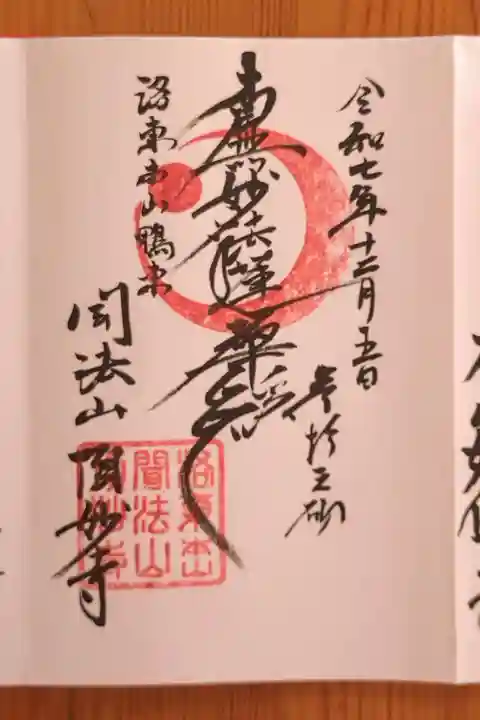 令和七年十二月五日
南無妙法蓮華経
洛東本山鴨東
聞法山 頂妙寺
洛東本山
聞法山
頂妙寺